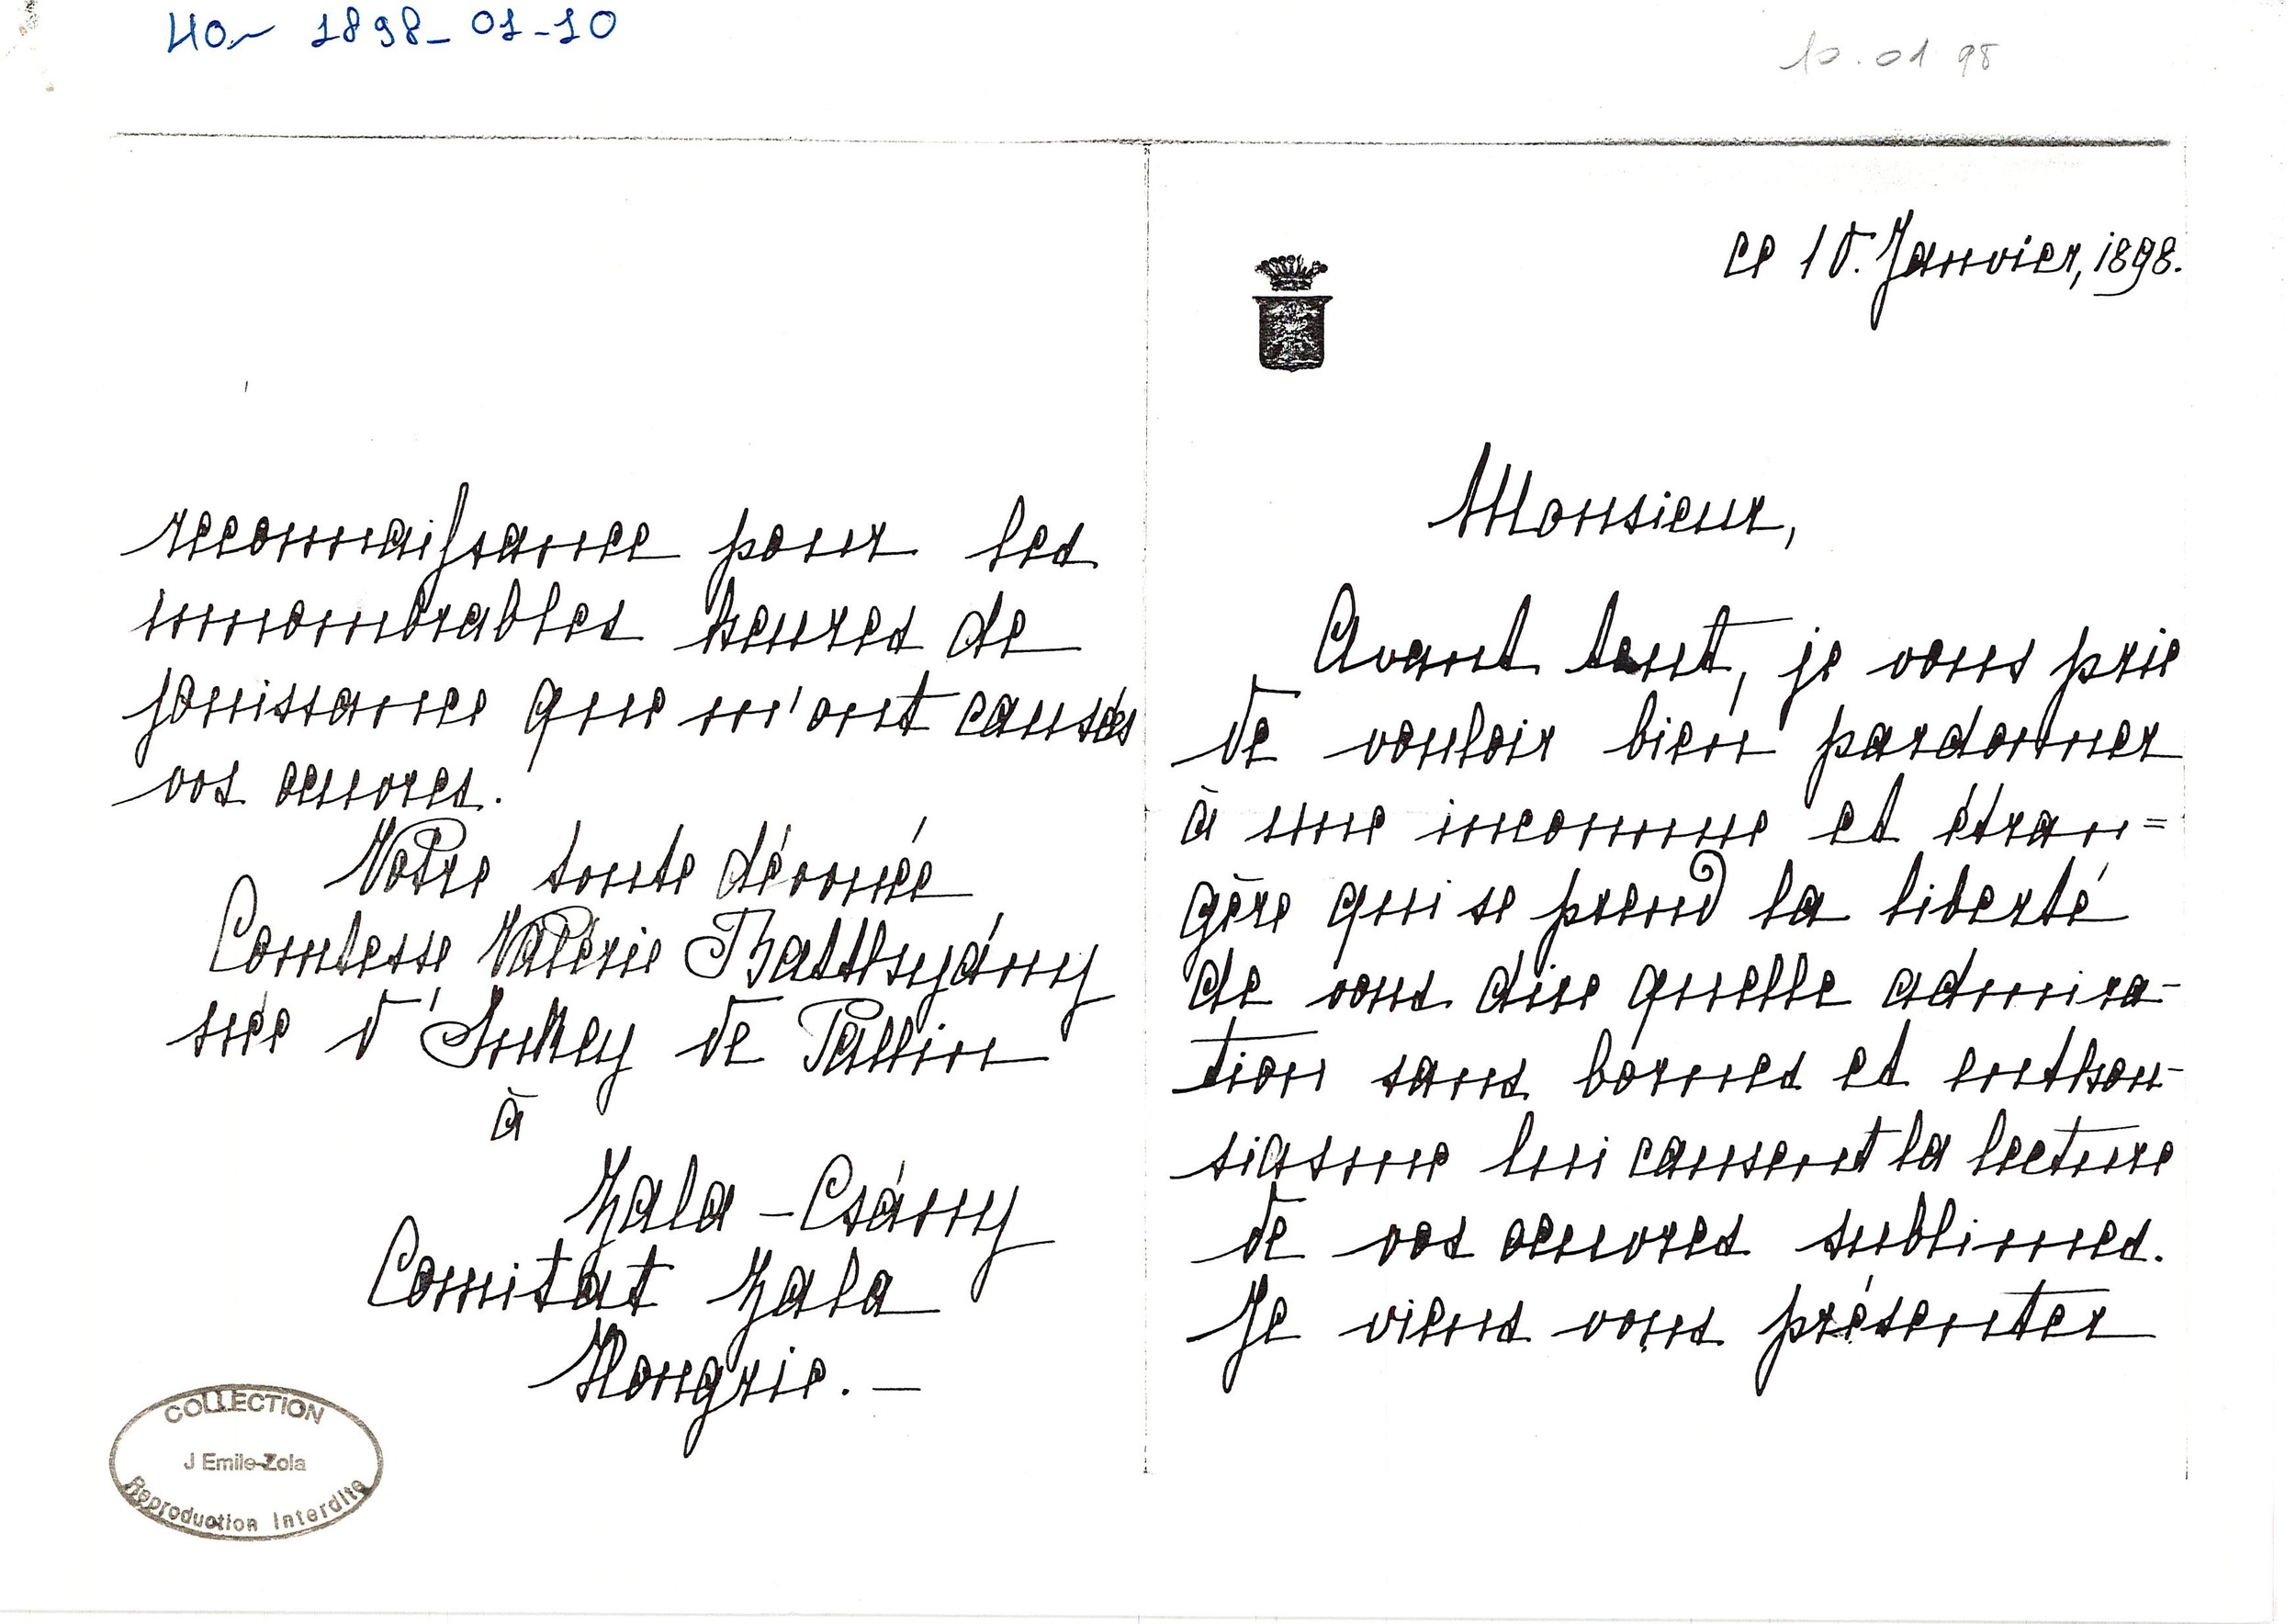 HON 1898_01_10
10.01 98
ce 10. Janvier, 1898.
Monsieur,
Avant tout, je vous prie
de vouloir bien pardonner
à une inconnue et étran=
gère qui se prend la liberté
de vous dire quelle admira-
tion sans bornes et enthou-
siasme lui causent la lecture
de vos oeuvres sublimes.
Je viens vous présenter
reconnaissance pour les
innombrables heures de
jouissance que m'ont causés
vos oeuvres.
Votre toute dévouée
Comtesse Valérie Batthyány
née d'Inkey de Pallin
à
Zala-Csány
Comitat Zala
Hongrie. —
COLLECTION
J Emile-Zola
Reproduction Interdite